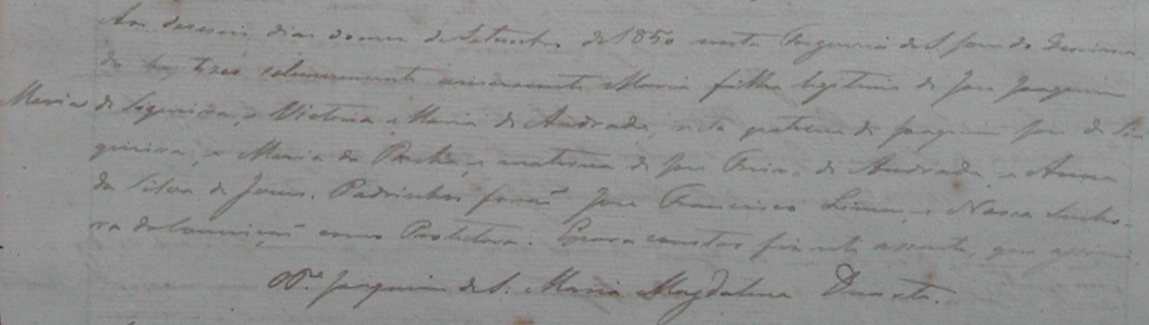 Aos deseseis dias do mes de Setembro de 1850 nesta Freguesia de S. Jose do
do baptizei solemnemente Maria filha legitima de Jose Joaquim
Maria de Siqueira, e Victoria Maria de Andrade, neta paterna de Joaquim Jose de Si-
queira, e Maria da Rocha, e materna de Jose Vieira de Andrade, e Anna
da Silva de Jesus. Padrinhos forão Jose Francisco Lima, e Nossa Senho-
ra da Conceição como Protetora. E para constar fiz este assento, que
O Pe. Joaquim de S. Maria Magdalena Duarte.